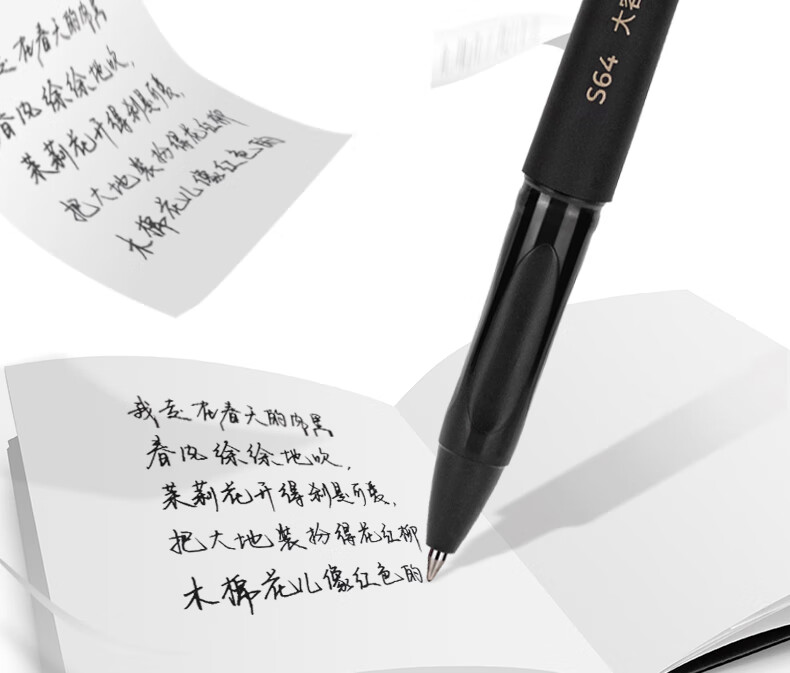 走在春天的
春风徐徐地吹,
茉莉花开得刹是可爱,
把大地装扮得花红柳
木棉花儿像红色的
S64 大
我走在春天的
春风徐徐地吹,
茉莉花开得刹是可爱,
把大地装扮得花红柳
木棉花儿像红色的